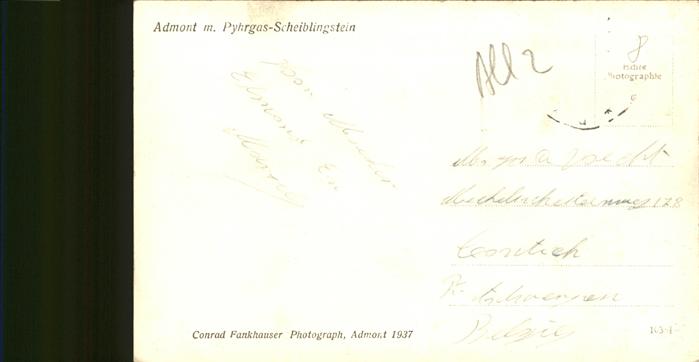 Admont m. Pyhrgas-Scheiblingstein
All 2
8
Echte
Photographie
Moeder
Edmond En
Marcel
Mechelschesteenweg 178
Contich
Pr. Antwerpen
Belgie
Conrad Fankhauser Photograph, Admont 1937